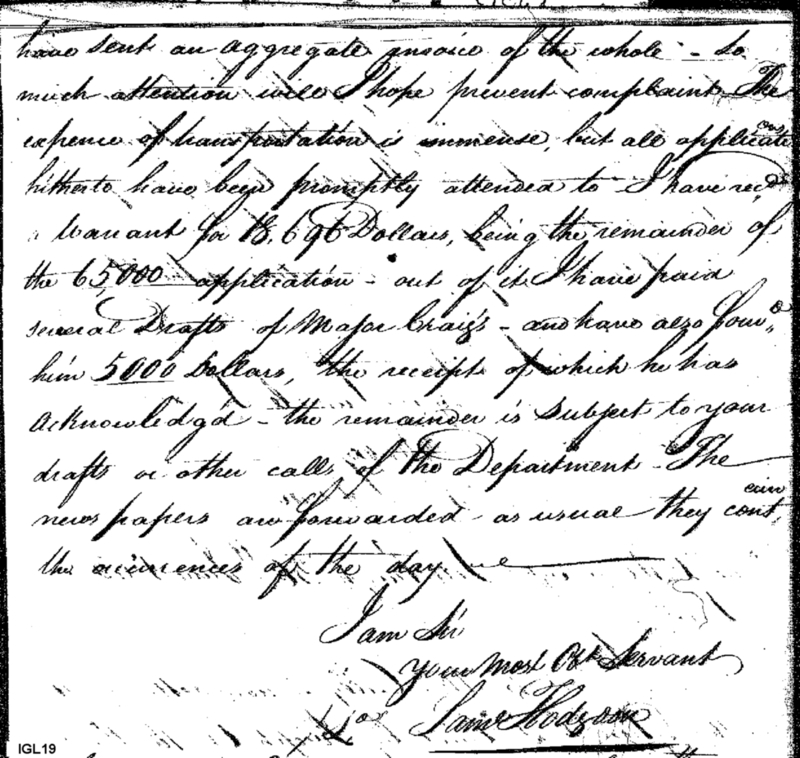 have sent an aggregate invoice of the whole - So
much attention will I hope prevent complaint - The
expence of transportation is immense, but all applications
hitherto have been promptly attended to - I have recd
a Warrant for 18,696 Dollars, being the remainder of
the 65,000 application - out of it I have paid
several Drafts of Major Craig's - and have also forwd
him 5000 Dollars, the receipt of which he has
acknowledg'd - the remainder is Subject to your
drafts or other calls of the Department - The
news papers are forwarded as usual they contain
the occurrences of the day
I am Sir
your most Obt Servant
Saml Hodgdon
IGL19